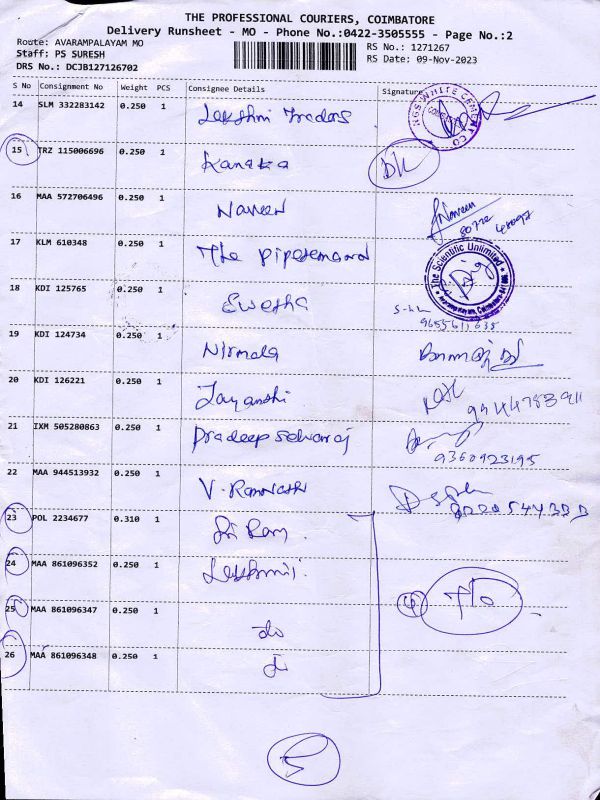 THE PROFESSIONAL COURIERS, COIMBATORE
Delivery Runsheet - MO - Phone No.:0422-3505555 - Page No.:2
Route: AVARAMPALAYAM MO
RS No.: 1271267
Staff: PS SURESH
RS Date: 09-Nov-2023
DRS No.: DCJB127126702
S No Consignment No Weight PCS Consignee Details Signature
14 SLM 332283142 0.250 1 Lakshmi Traders
15 TRZ 115006696 0.250 1 Kanaka
16 MAA 572706496 0.250 1 Naveen Naveen
17 KLM 610348 0.250 1 The
The Scientific Unlimited
18 KDI 125765 0.250 1 Swetha
19 KDI 124734 0.250 1 Nirmala
20 KDI 126221 0.250 1 Jayanthi
9944783911
21 IXM 505280863 0.250 1 Pradeep Selvaraj
9360923195
22 MAA 944513932 0.250 1 V.
23 POL 2234677 0.310 1 Sri Ram
24 MAA 861096352 0.250 1
25 MAA 861096347 0.250 1 do
26 MAA 861096348 0.250 1 do
5